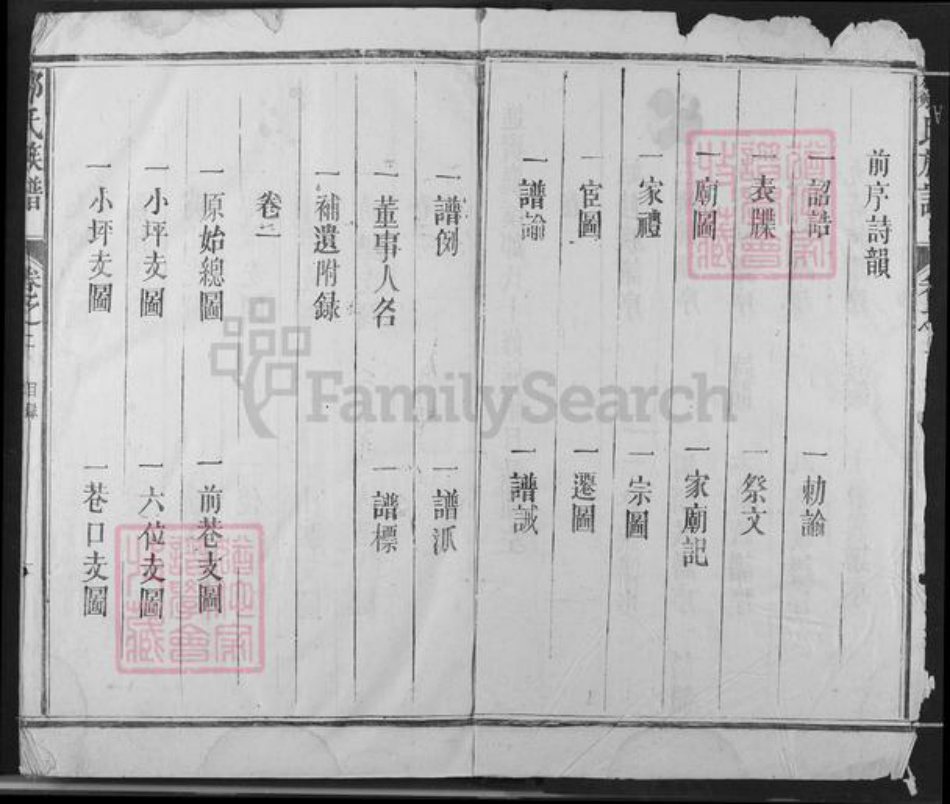 前序詩韻
一詔誥 一勅諭
一表牒 一祭文
一廟圖 一家廟記
一家禮 一宗圖
一宦圖 一遷圖
一譜諭 一譜誡
一譜例 一譜派
一董事人名 一譜標
一補遺附録
卷二
一原始總圖 一前巷支圖
一小坪支圖 一六位支圖
一小坪支圖 一巷口支圖
氏族譜
目録
FamilySearch